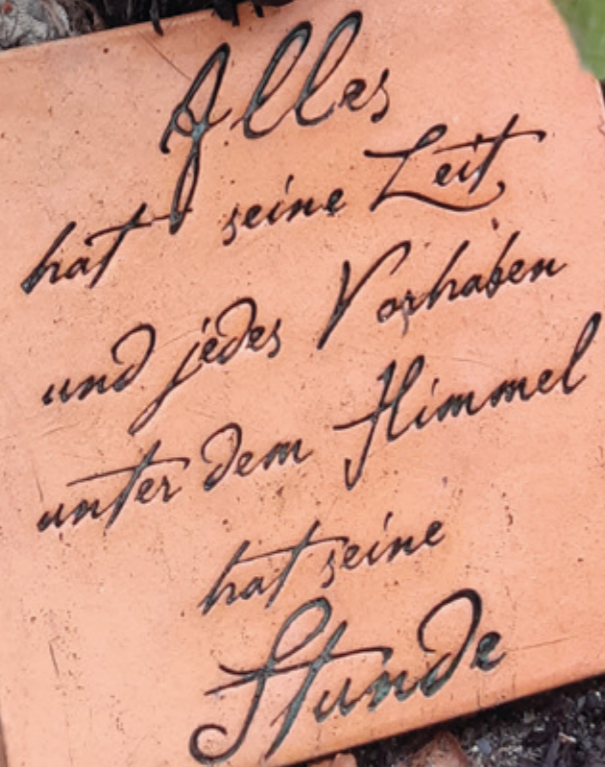 Alles
hat seine Zeit,
und jedes Vorhaben
unter dem Himmel
hat seine
Stunde